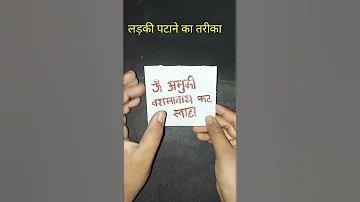 लड़की पटाने का तरीका
ॐ अमुकी
वशमानाय कट
स्वाहा